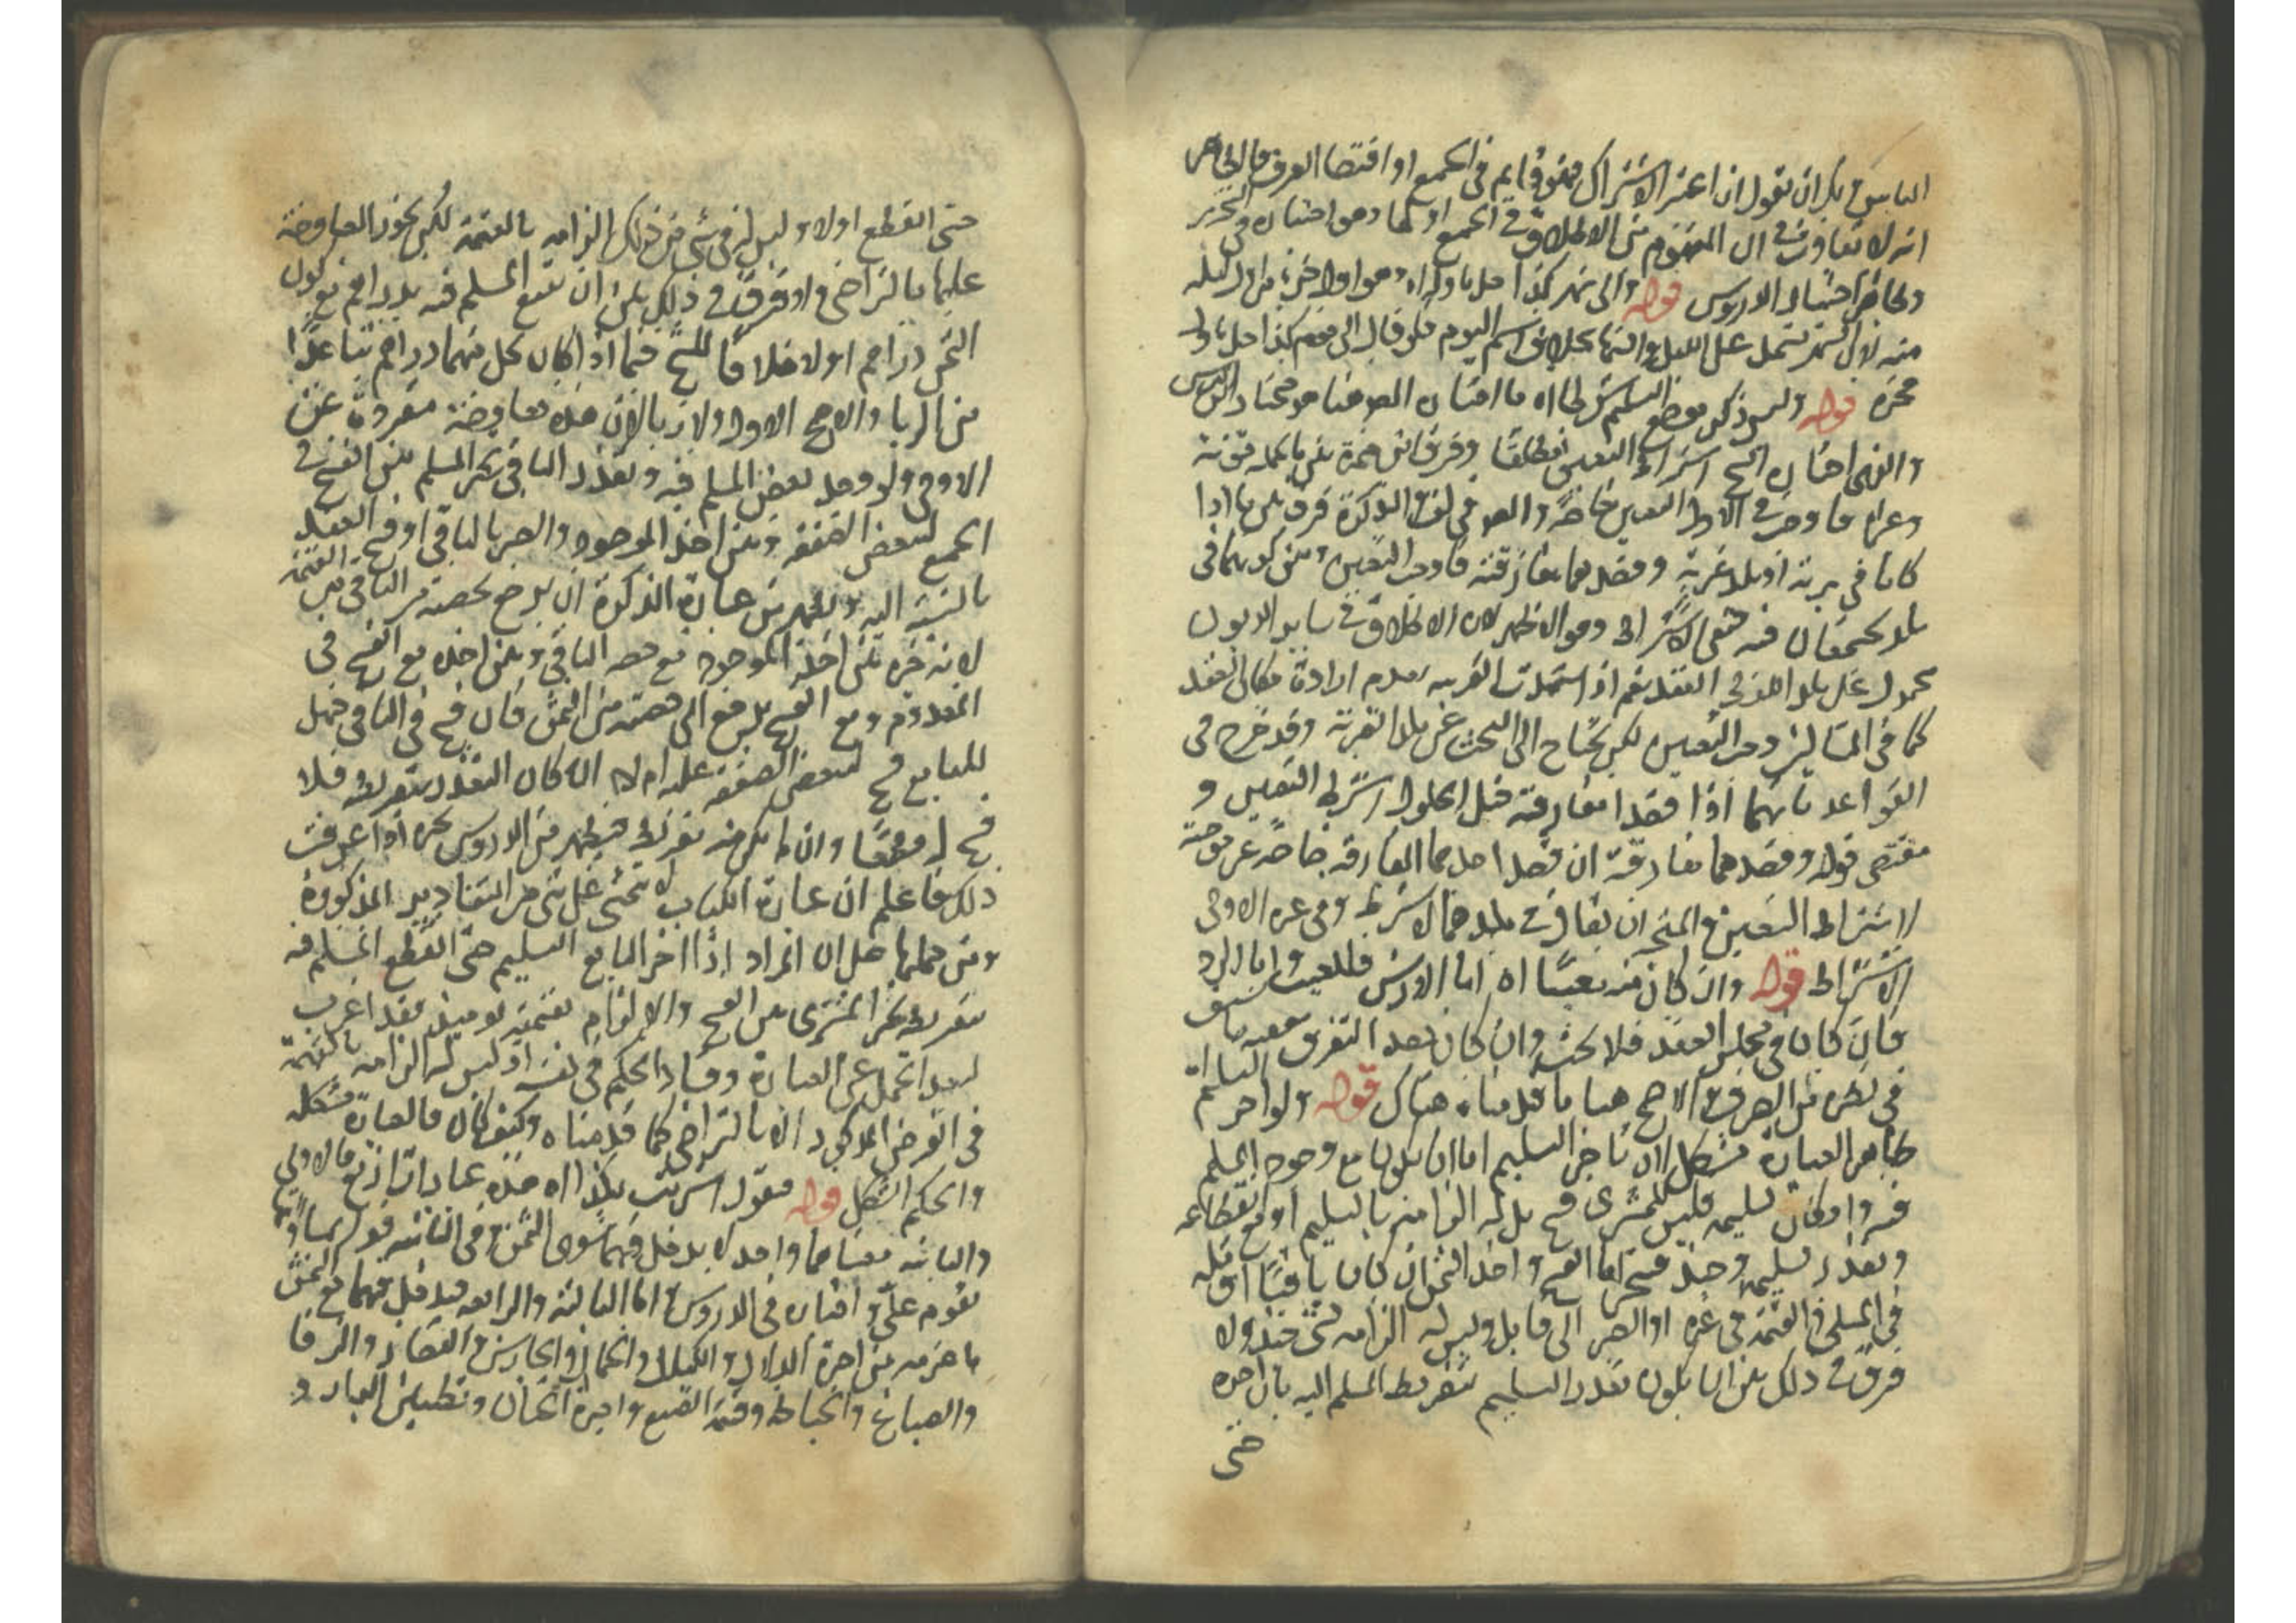 الناس فيمكن ان تقول ان اعتبر الاشتراك فهو قايم في الجميع او اقتضا العرف فالظاهر
انه لا تفاوت في ان المفهوم من الاطلاق في الجميع اولها وهو اختياره في التحرير
وظاهر اختيار الدروس قوله والى شهر كذا حل باوله اه وهو اول جزء من ليلة
منه لان الشهر يشتمل على الليل والنهار بخلاف اسم اليوم فلو قال الى يوم كذا حل باول
فجره قوله وليس ذكر موضع التسليم شرطا اه ما اختاره المص هنا هو مختار الدروس
والذي اختاره الشيخ اشتراط التعيين مطلقا وفرق ابن حمزة بين ما لحمله مؤنة
وغيره فاوجب في الاول التعيين خاصة والمص في التذكرة فرق بين ما اذا
كانا في برية او بلد غربة وقصدهما مفارقته فاوجب التعيين وبين كونهما في
بلد يجتمعان فيه فنفى الاشتراط وهو الاظهر لان الاطلاق في ساير الديون
محمول على بلد العقد نعم اذا شهدت القرينة بعدم ارادة مكان العقد
كما في المثالين وجب التعيين لكن يحتاج الى البحث عن بلد القرية وقد خرج في
القواعد بانهما اذا قصدا مفارقته قبل الحلول اشترط التعيين و
مقتضى قوله وقصدهما مفارقته ان قصد احدهما المفارقة خاصة غير موجب
لاشتراط التعيين والمتجه ان يقال في بلدهما لا يشترط وفي غيره الاولى
الاشتراط قوله وان كان فيه تعينا اه اما الارش فللعيب واما الرد
فان كان في مجلس العقد فلا بحث وان كان بعد التفرق ففيه ما سبق
في نظيره من الصرف والاصح هنا ما قدمناه هناك قوله ولو اخر التسليم اه
ظاهر العبارة مشكل لان تاخير التسليم اما ان يكون مع وجود المسلم
فيه وامكان تسليمه فليس للمشتري فسخ بل له الزامه بالتسليم او مع انقطاعه
وتعذر تسليمه وحينئذ فيتخير اما الفسخ واخذ الثمن ان كان باقيا او مثله
في المثلي والقيمة في غيره او الصبر الى قابل وليس له الزامه بشئ حينئذ ولا
فرق في ذلك بين ان يكون تعذر التسليم بتفريط المسلم اليه بان اخره
حتى
حتى انقطع اولا وليس له في شئ من ذلك الزامه بالقيمة لكن يجوز المعاوضة
عليها بالتراضي ولا فرق في ذلك بين ان يبيع المسلم فيه بدراهم مع كون
الثمن دراهم اولا خلافا للشيخ فيما اذا كان كل منهما دراهم تباعدا
من الربا والاصح الاول ولا ربا لان هذه معاوضة مفردة عن
الاولى ولو وجد بعض المسلم فيه وتعذر الباقي تخير المسلم بين الفسخ في
الجميع لتبعض الصفقة وبين اخذ الموجود والصبر بالباقي او فسخ العقد
بالنسبة اليه ويظهر من عبارة التذكرة ان يرجع بحصته من القيمة
لانه خيره بين اخذ الموجود مع حصة الباقي وبين اخذه مع الفسخ في
المعدوم ومع الفسخ يرجع الى حصته من الثمن فان فسخ في الباقي فهل
للبايع فسخ لتبعض الصفقة عليه ام لا ان كان التعذر بتفريطه فلا
فسخ له قطعا وان لم يكن منه تفريط فيظهر من الدروس تخيره اذا عرفت
ذلك فاعلم ان عبارة الكتاب لا تتمشى على شئ من التقادير المذكورة
ومن حملها على ان المراد اذا اخر البايع التسليم حتى انقطع المسلم فيه
بتفريط تخير المشتري بين الفسخ والالزام بقيمته يومئذ فقد اغرب
لبعد المحمل عن العبارة وفساد الحكم في نفسه اذ ليس له الزامه بالقيمة
في الفرض المذكور الا بالتراضي كما قدمناه وكيف كان فالعبارة مشكلة
والحكم اشكل قوله فيقول اشريت بكذا اه هذه عبارات اربع فالاولى
والثانية معناهما واحد لا يدخل فيهما سوى الثمن وفي الثانية قول
تقوم علي واختاره في الدروس اما الثالثة والرابعة فيدخل فيهما مع الثمن
ما غرمه من اجرة الدلال والكيال والحمال والحارس والقصار والرفا
والصباغ والخياط وقيمة الصبغ واجرة الختان وتطيين الدار و